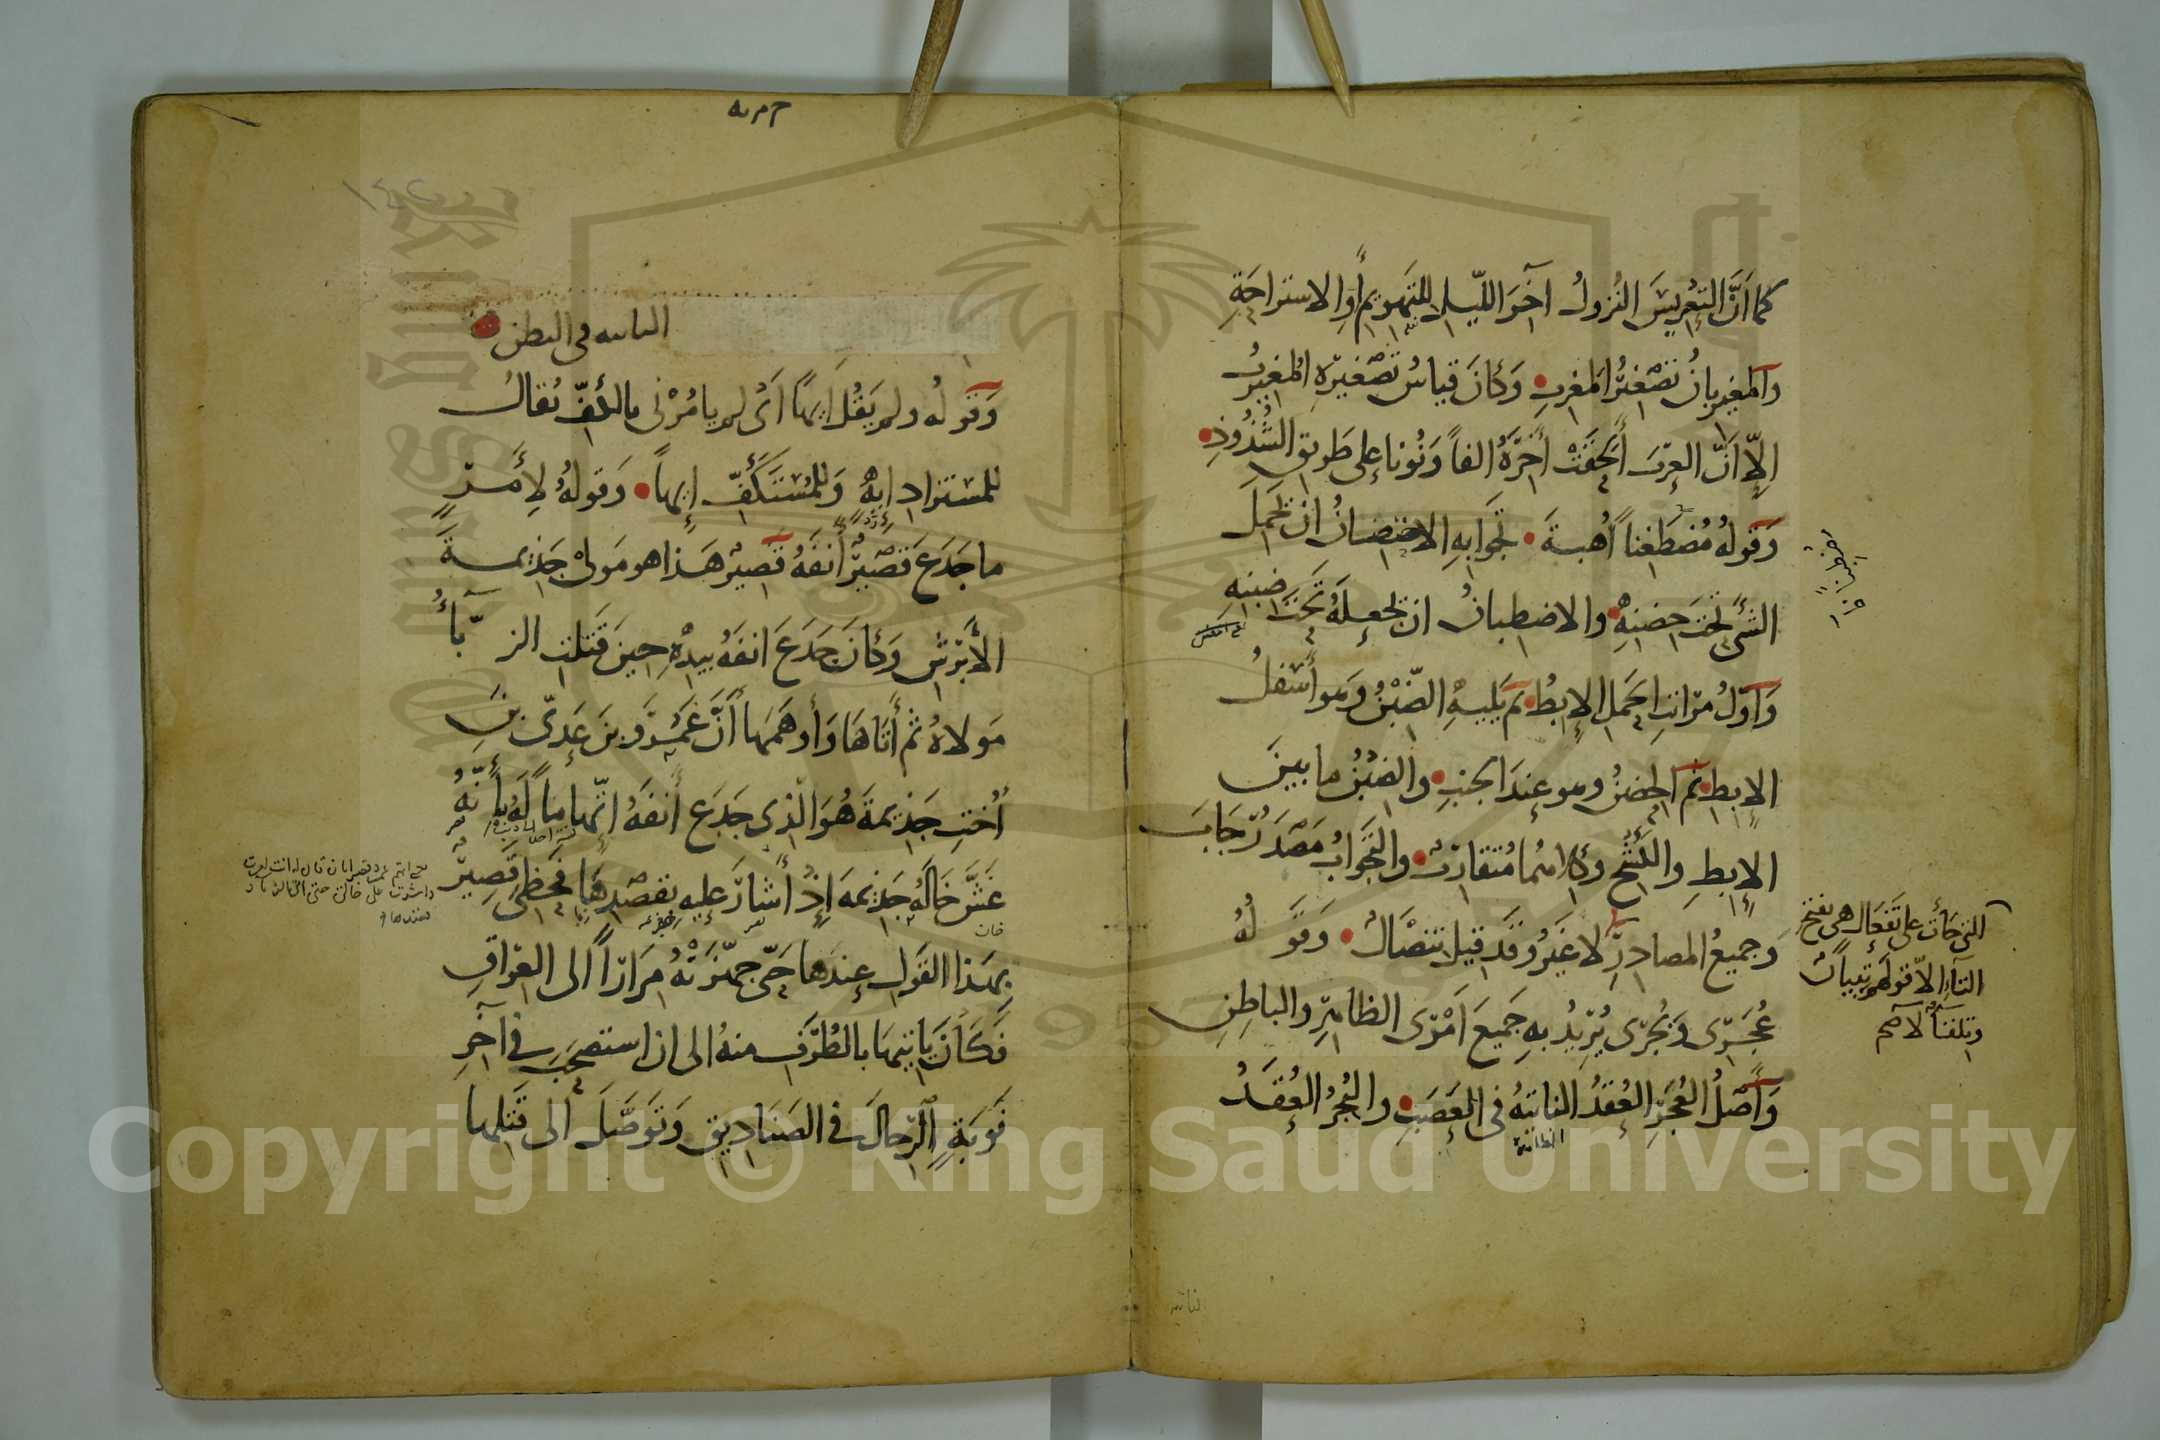 كما اَنَّ التعريسَ النُزولُ آخرَ الليلِ للتهويمِ أوِ الاستراحَةِ
والمغيربانُ تصغيرُ المغربِ وَكانَ قياسُ تصغيرِهِ المُغيرِبُ
إلّا اَنَّ العربَ أَلحقتْ آخرَهُ الفاً وَنُونا على طريقِ الشُذُوذِ
وَقولُه مُضطغِناً أُهبةَ تجوابِهِ الاضضانُ ان تحملَ
الشئَ تحتَ حِضنِهِ والاضطبانُ ان تجعلَهُ تحتَ ضِبنِهِ
وَاَوّلُ مراتبِ الحملِ الإبطُ ثم يَليهِ الضِّبْنُ وهو أسْفلُ
الإبطِ ثم الحِضنُ وهو عِندَ الجنبِ والضبنُ ما بينَ
الإبطِ والكشحِ وكلاهما مُتقاربٌ والتَّجوابُ مَصْدَرُ جَابَ
التي جَاءت على تَفعَال هى بفتح
التاءِ الّا قولهم تِبيان
وتلقاءُ لا صح
وجميعُ المصادرِ لا غَيرُ وَقَد قيلَ تنضالُ وَقَو لُهُ
عُجَرِى وَبُجَرِى يُرِيدُ بهِ جَميعَ اَمْرِى الظاهِرِ والباطِنِ
وَأَصْلُ العُجَرِ العُقَدُ الناتِئةُ فى العَصَبِ والبُجَرُ العُقَدُ
الناتئه فى البطن
وَقَولُه ولم يَقُل اِيهاً اَىْ لم يامُرْنى بالكفِّ يُقالُ
للمستزادِ ايهِ وَللمُسْتَكَفِّ إيهاً وَقولهُ لِأَمرٍ
ما جَدَعَ قصيرٌ أنفَهُ قصيرٌ هَذا هو مَولى جَذيمةَ
الأبرشِ وَكانَ جَدَعَ انفَهُ بيدِهِ حِينَ قَتلتِ الزَّبَّاءُ
مَولاهُ ثم أَتَاهَا وَأوهَمَها أَنَّ عَمْرَو بنَ عَدِىّ بنِ
أُختِ جَذيمةَ هُوَ الَّذِى جَدَعَ أنفَهُ اتّهاماً لَهُ بأنّهُ
غَشَّ خَالَهُ جَذيمهَ إِذْ أَشارَ عليهِ بقصْدِهَا فَحَظِىَ قَصِيرٌ
بهَذا القَولِ عِندَها حَتّى جهّزَتْهُ مِرَاراً الى العِرَاقِ
فَكَانَ يَاتيهَا بالطُرَفِ منهُ الى ان استصحَبَ فى آخرِ
نَوبَةٍ الرّجالَ فى الصَنَاديقِ وَتَوَصَّلَ الى قَتلِها
Copyright © King Saud University